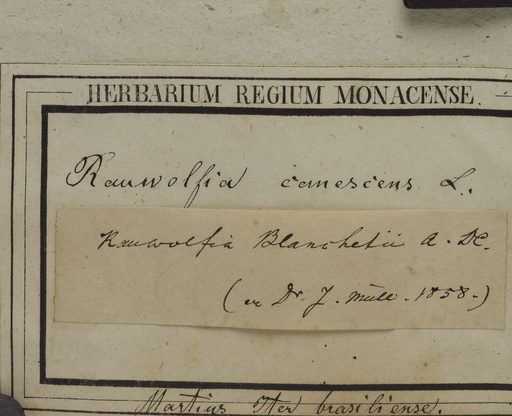 HERBARIUM REGIUM MONACENSE.
Rauwolfia canescens L.
Rauwolfia Blanchetii A. DC.
(ex Dr. J. Müll. 1858.)
Martius Iter brasiliense.